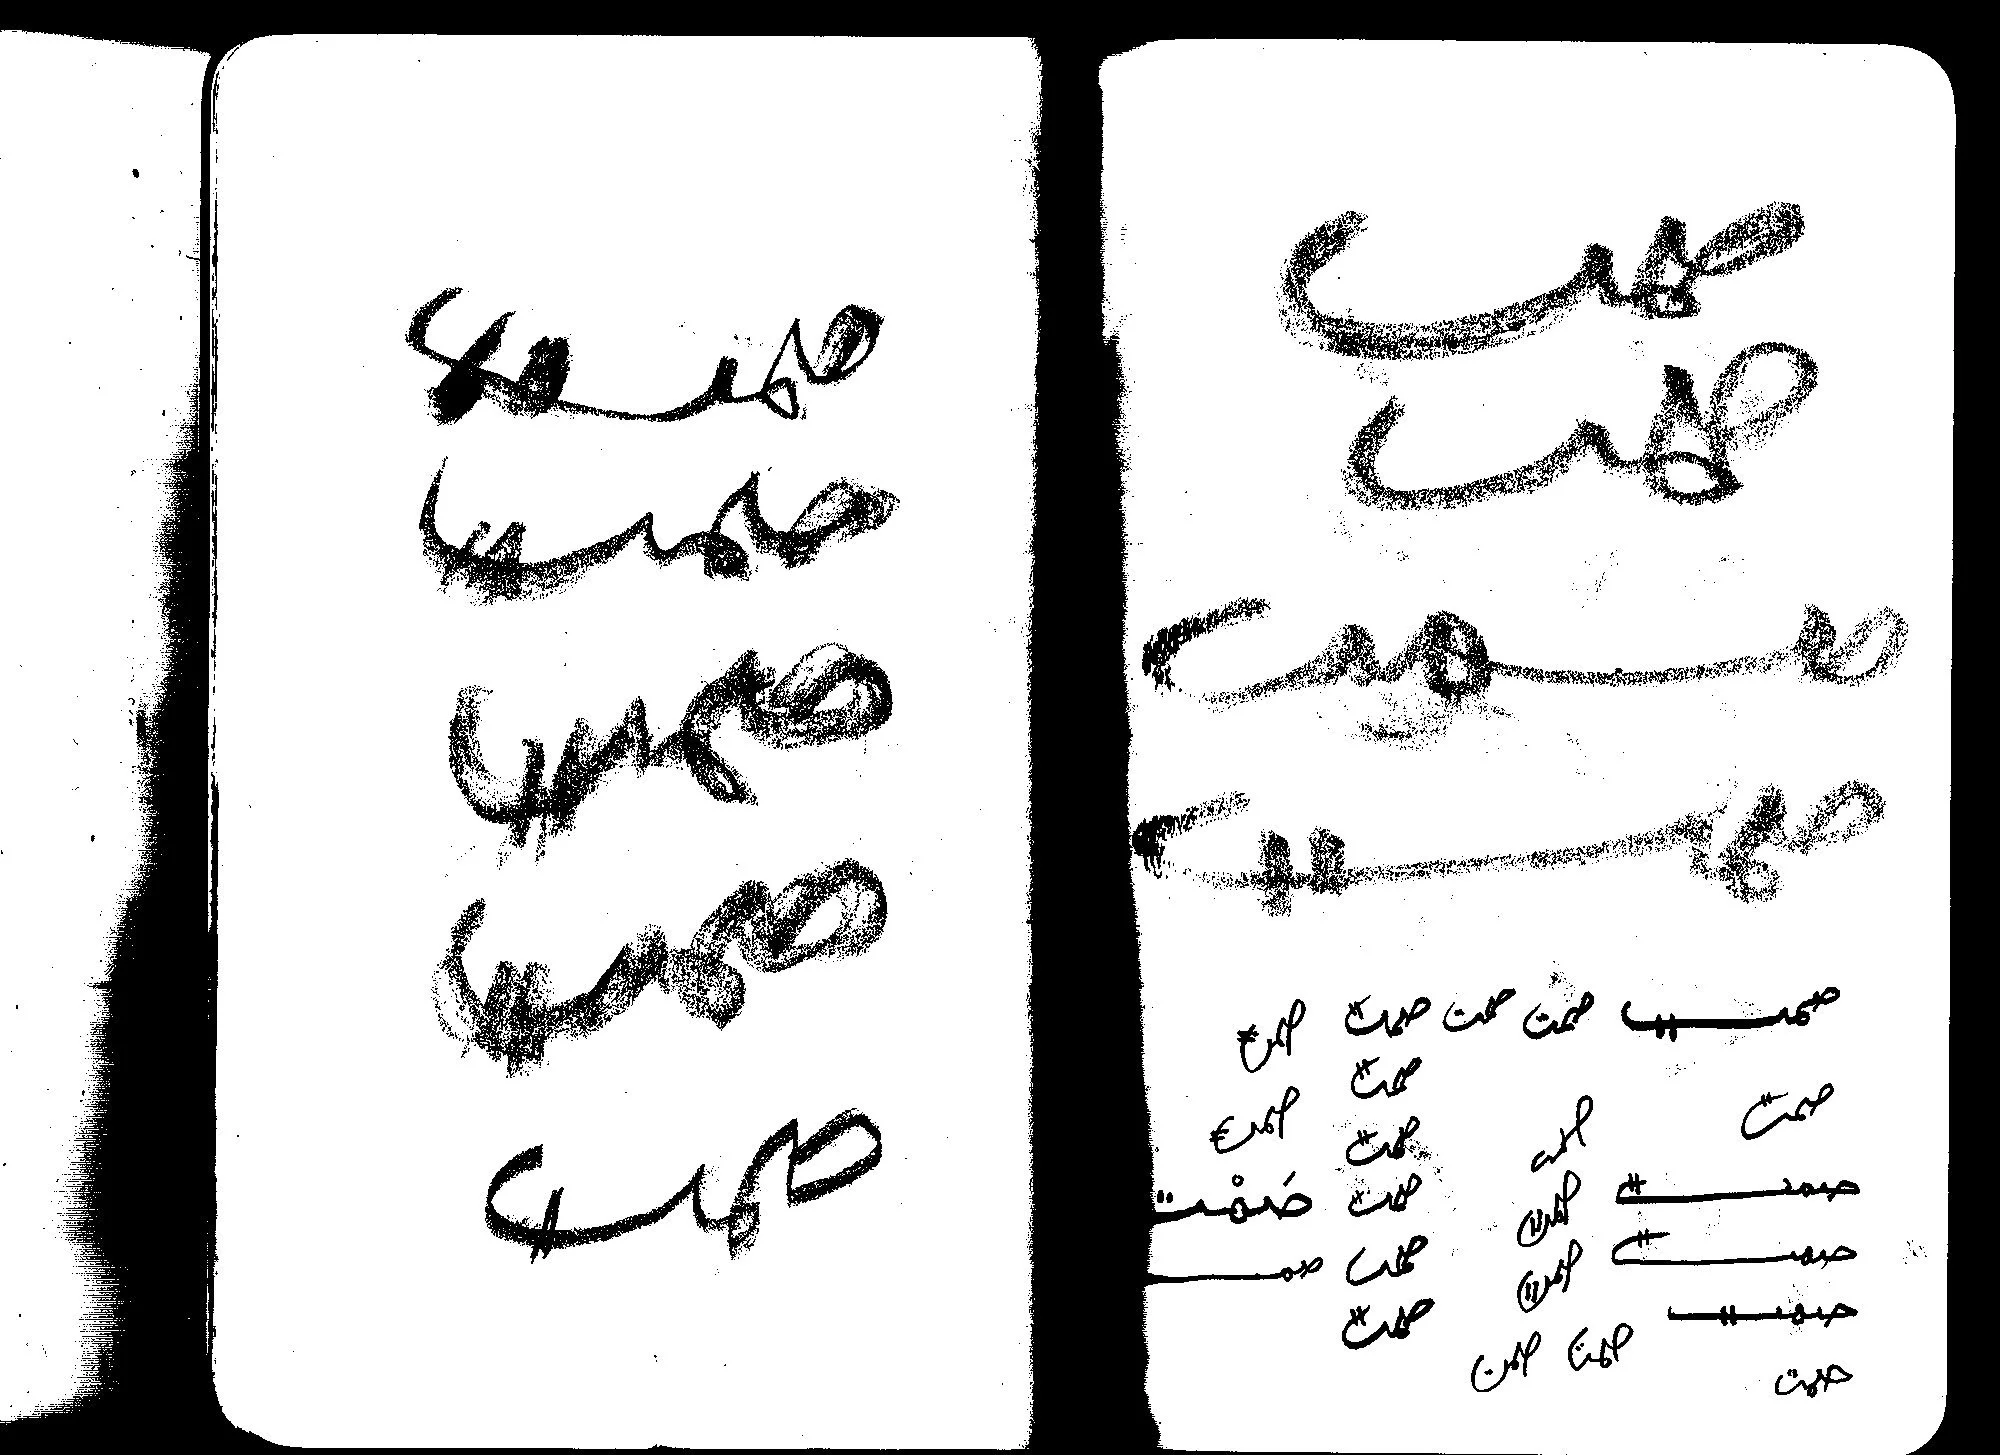 صمت
صمت
صمت
صمت
صمت صمت صمت صمت صمت
صمت
صمت صمت صمت
صمت
صمت صمت صمت صَمْت
صمت صمت صمت صمـ
صمت صمت
صمت صمت
صمت
صمت
صمت
صمت
صمت
صمت